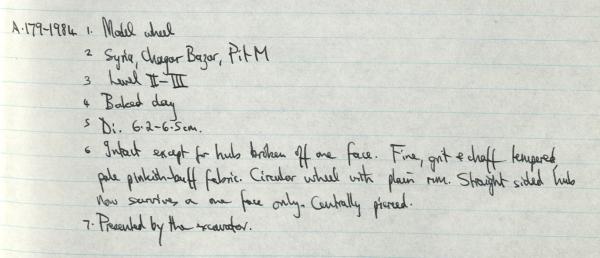 A.179-1984 1. Model wheel
2 Syria, Chagar Bazar, Pit M
3 Level II-III
4 Baked clay
5 Di. 6.2-6.5cm.
6 Intact except for hub broken off one face. Fine, grit & chaff tempered,
pale pinkish-buff fabric. Circular wheel with plain rim. Straight sided hub
now survives on one face only. Centrally pierced.
7. Presented by the excavator.